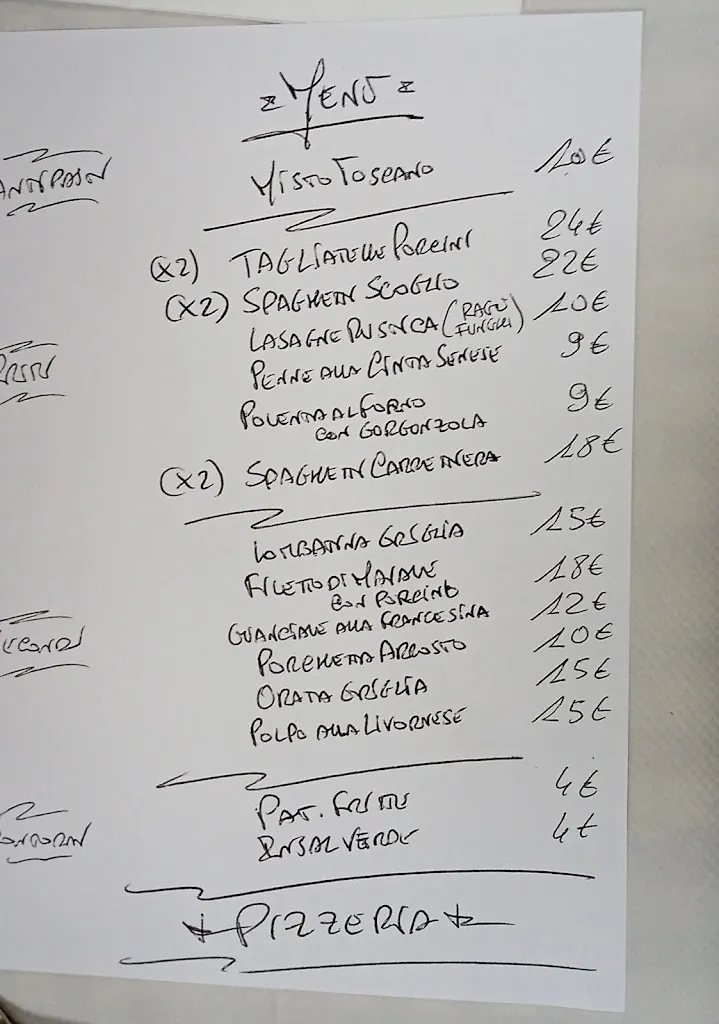 MENÙ
ANTIPASTI
MISTO TOSCANO 10€
(x2) TAGLIATELLE PORCINI 24€
(x2) SPAGHETTI SCOGLIO 22€
LASAGNE RUSTICA (RAGÙ FUNGHI) 10€
PRIMI
PENNE ALLA CINTA SENESE 9€
POLENTA AL FORNO 9€
CON GORGONZOLA
(x2) SPAGHETTI CARRETTIERA 18€
LOMBATINA GRIGLIA 15€
FILETTO DI MAIALE 18€
CON PORCINO
GUANCIALE ALLA FRANCESINA 12€
SECONDI
PORCHETTA ARROSTO 10€
ORATA GRIGLIA 15€
POLPO ALLA LIVORNESE 15€
PAT. FRITTE 4€
CONTORNI
INSAL VERDE 4€
PIZZERIA